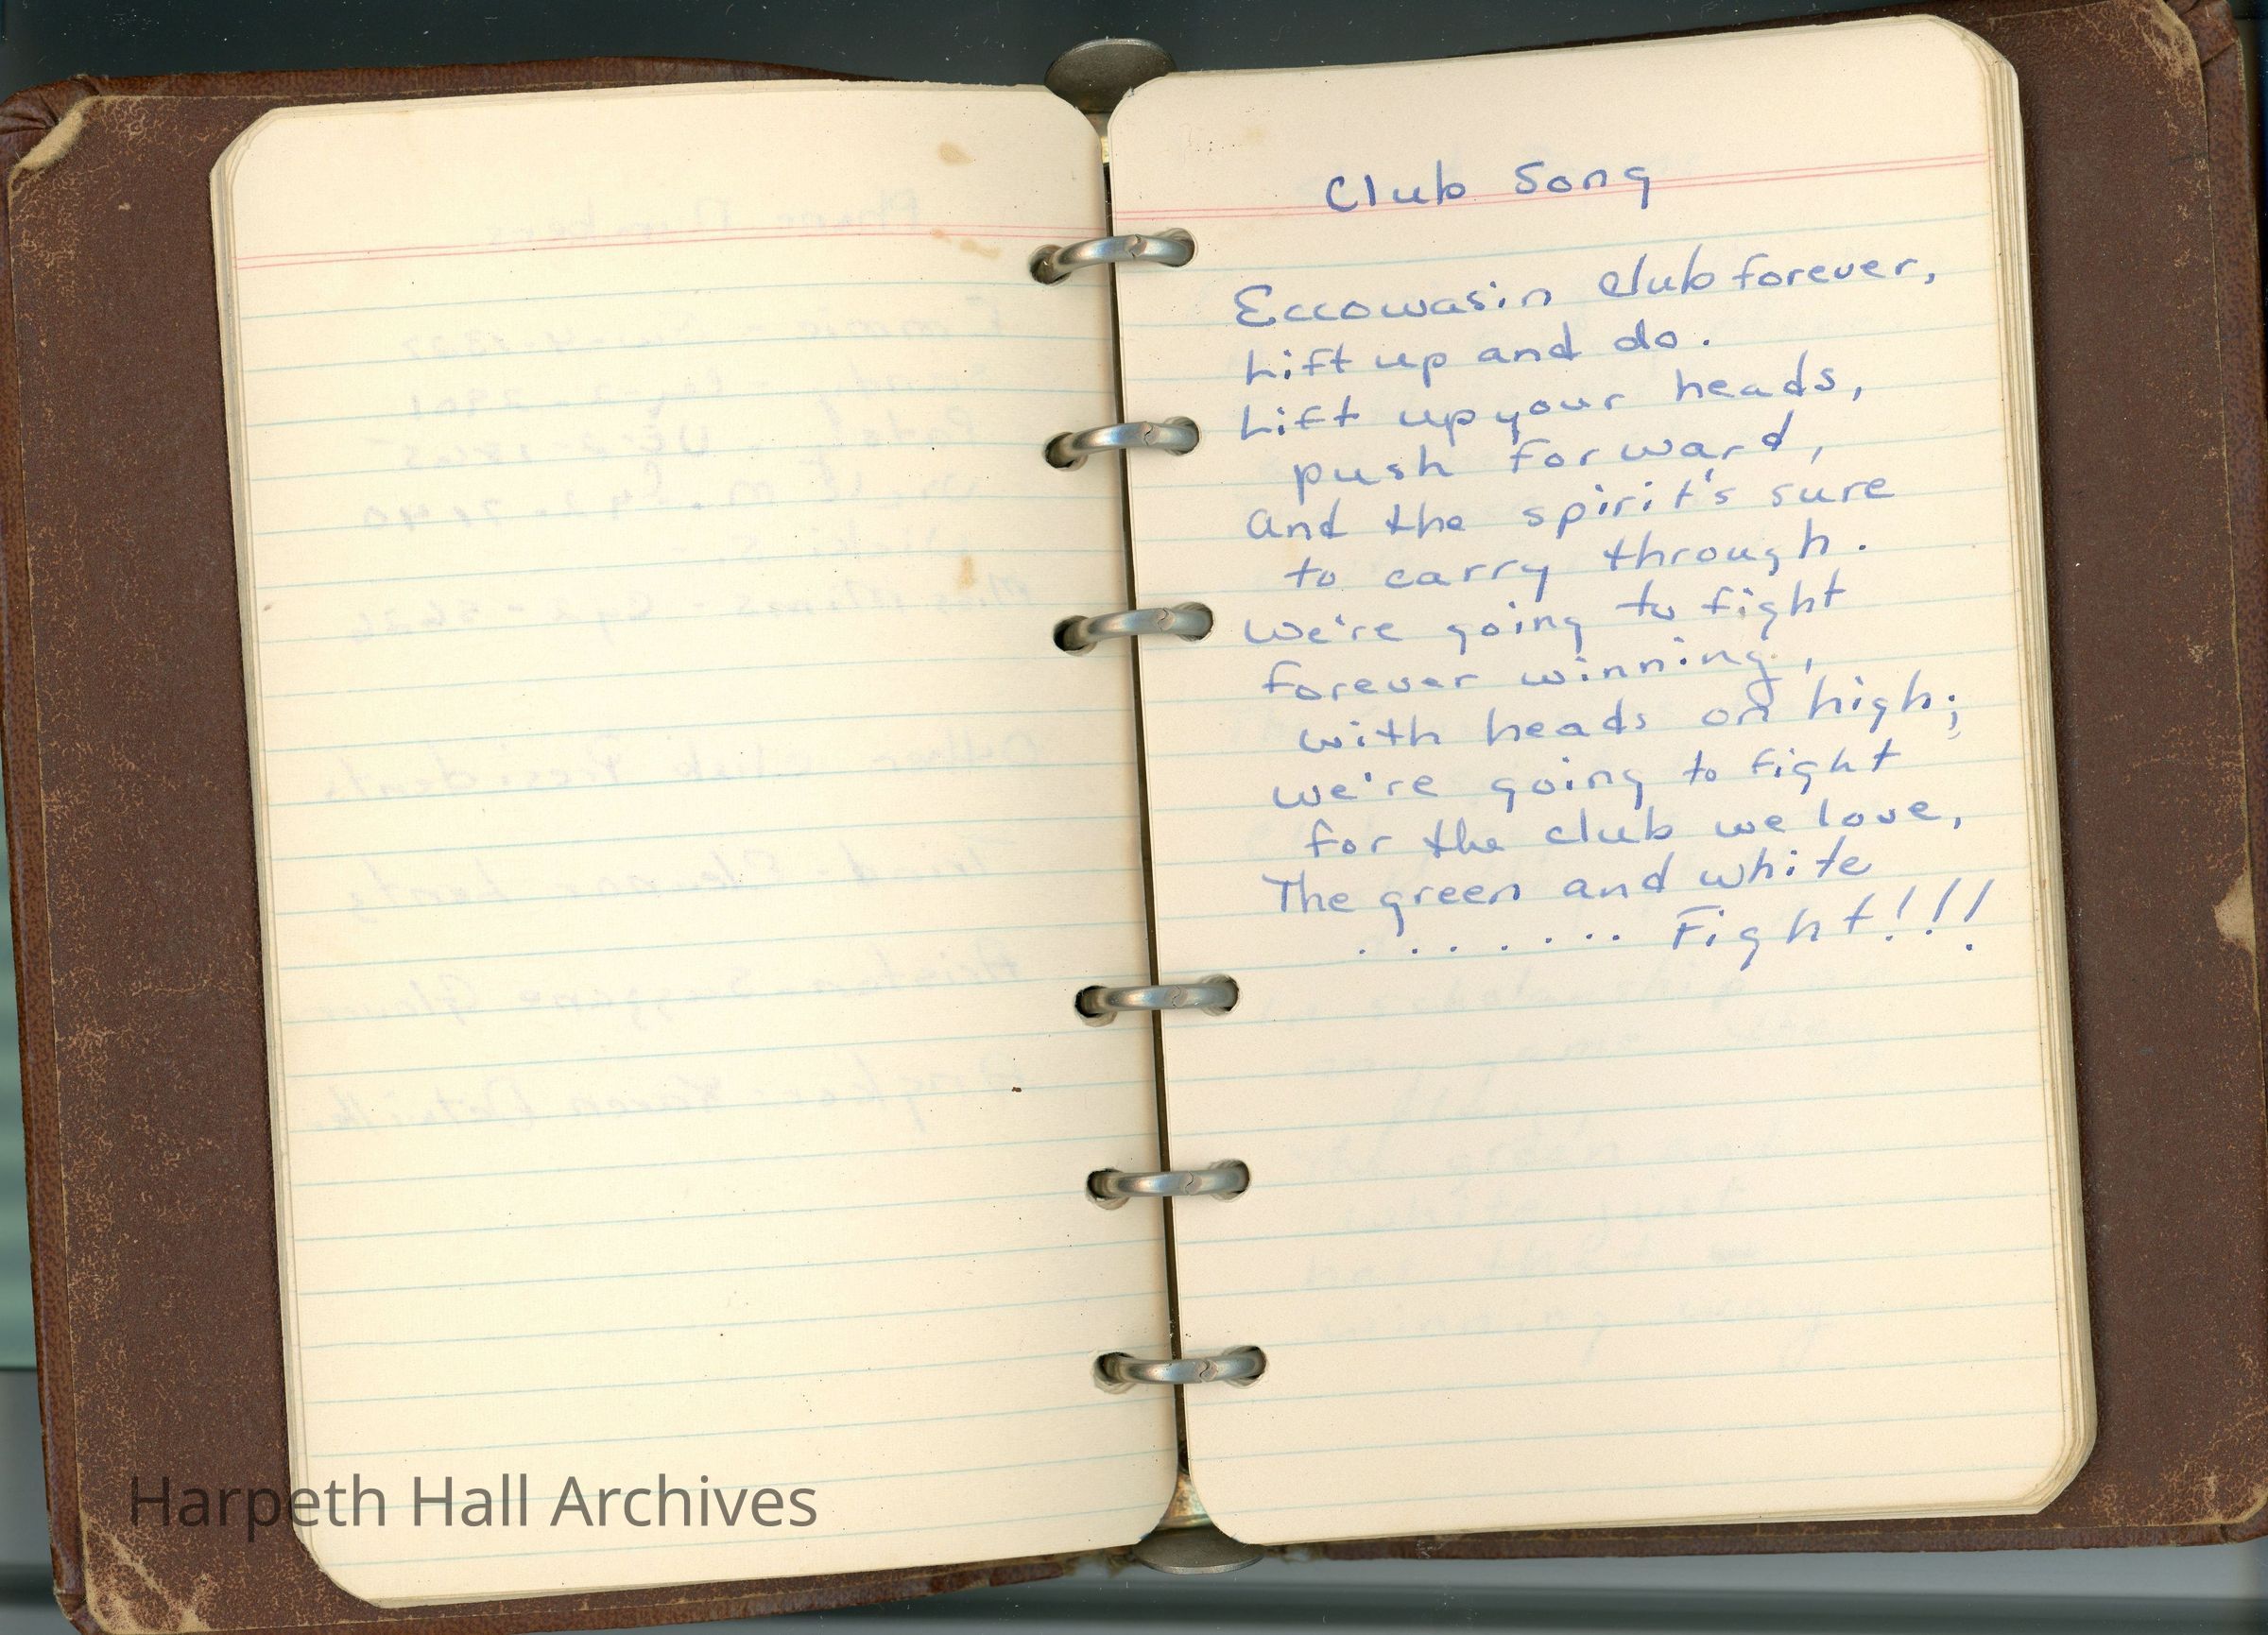 Club Song
Eccowasin Club forever,
Lift up and do.
Lift up your heads,
push forward,
and the spirit's sure
to carry through.
We're going to fight
forever winning,
with heads on high;
we're going to fight
for the club we love,
The green and white
. . . . . . . Fight!!!
Harpeth Hall Archives